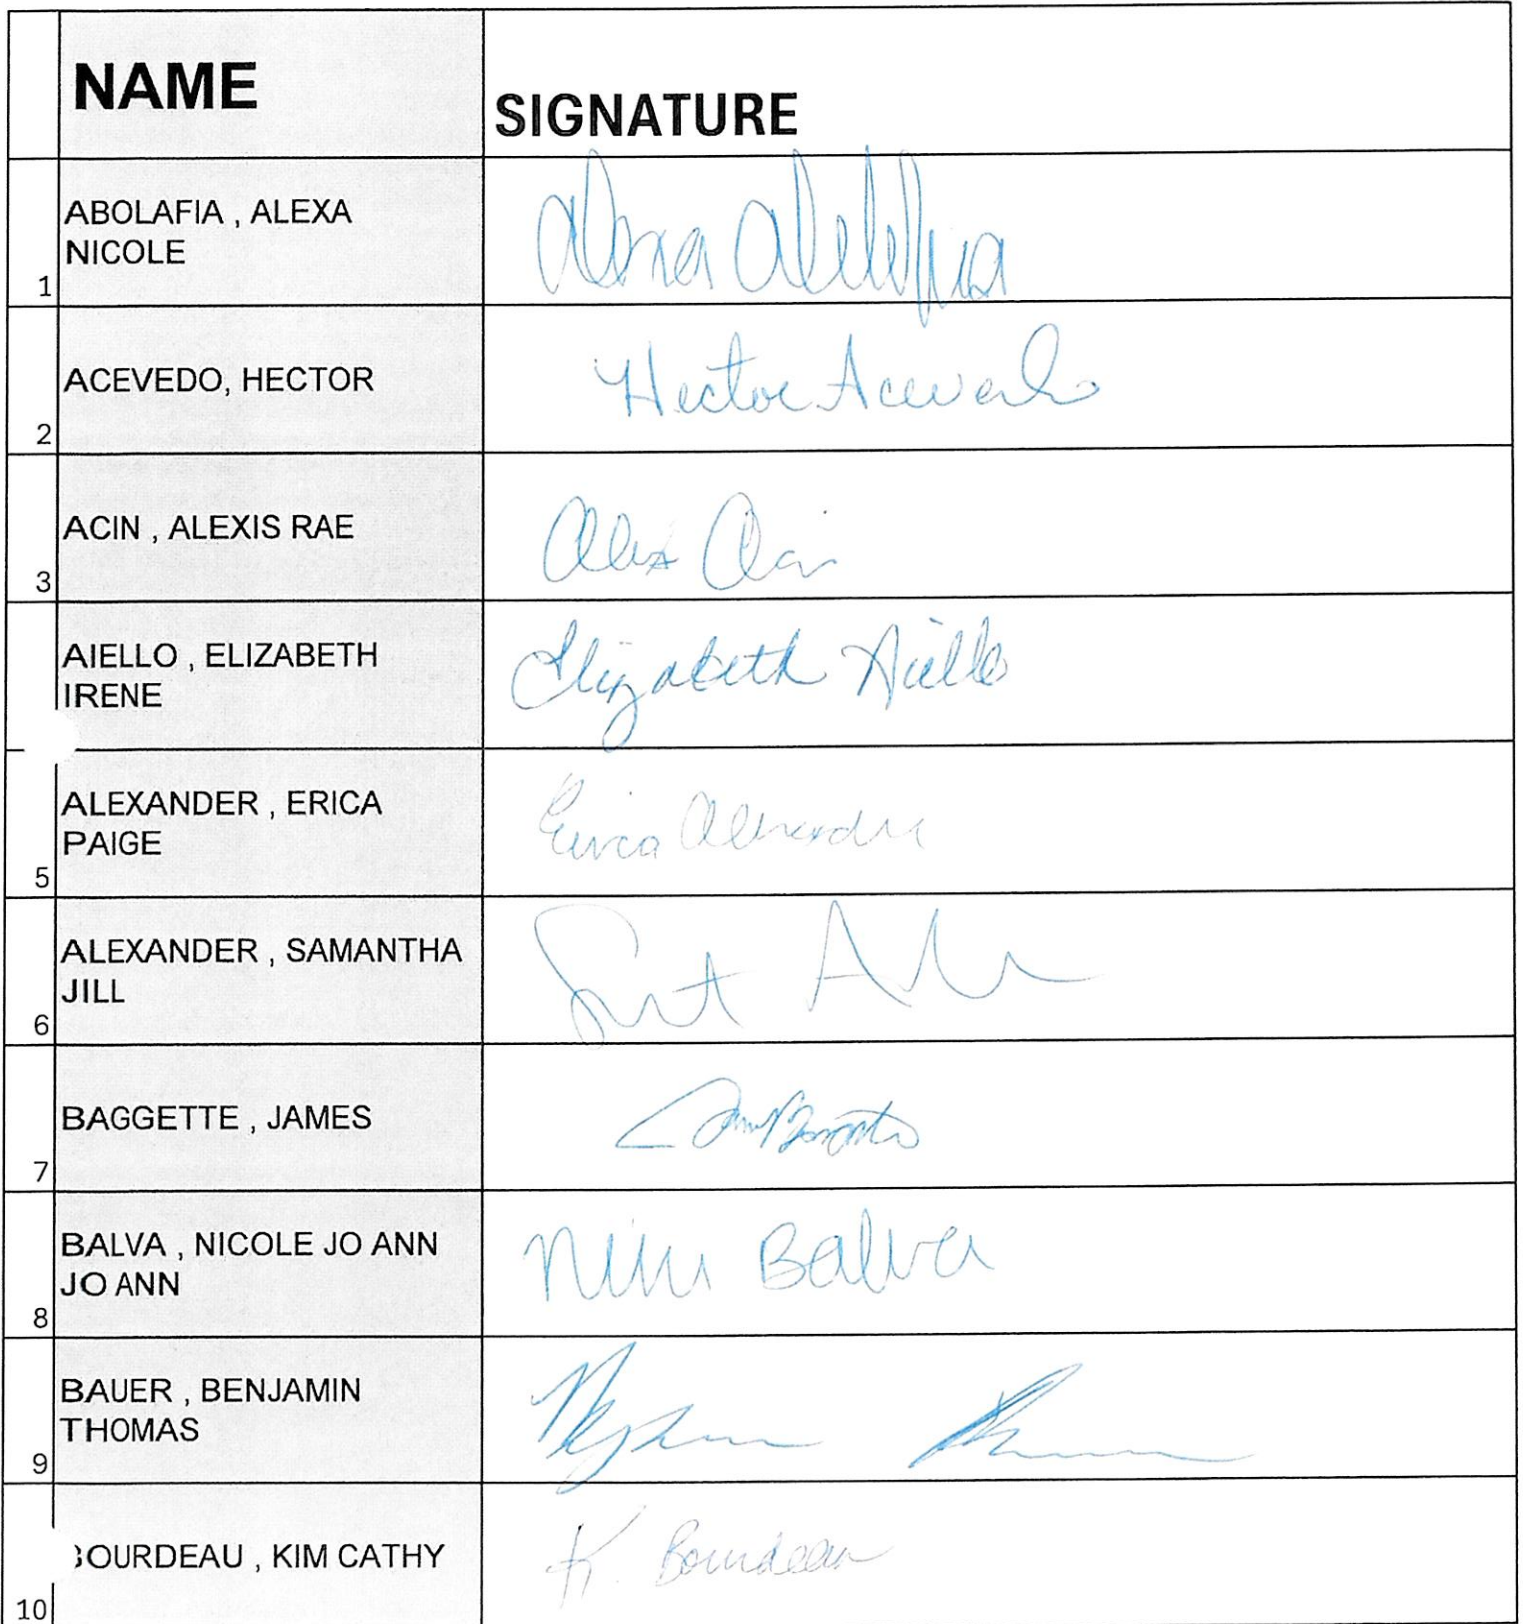 NAME
SIGNATURE
ABOLAFIA , ALEXA
NICOLE
1
Alexa Abolafia
ACEVEDO, HECTOR
2
Hector Acevedo
ACIN , ALEXIS RAE
3
Alex Acin
AIELLO , ELIZABETH
IRENE
Elizabeth Aiello
ALEXANDER , ERICA
PAIGE
5
Erica Alexander
ALEXANDER , SAMANTHA
JILL
6
BAGGETTE , JAMES
7
BALVA , NICOLE JO ANN
JO ANN
8
Niki Balva
BAUER , BENJAMIN
THOMAS
9
OURDEAU , KIM CATHY
10
K. Bourdeau